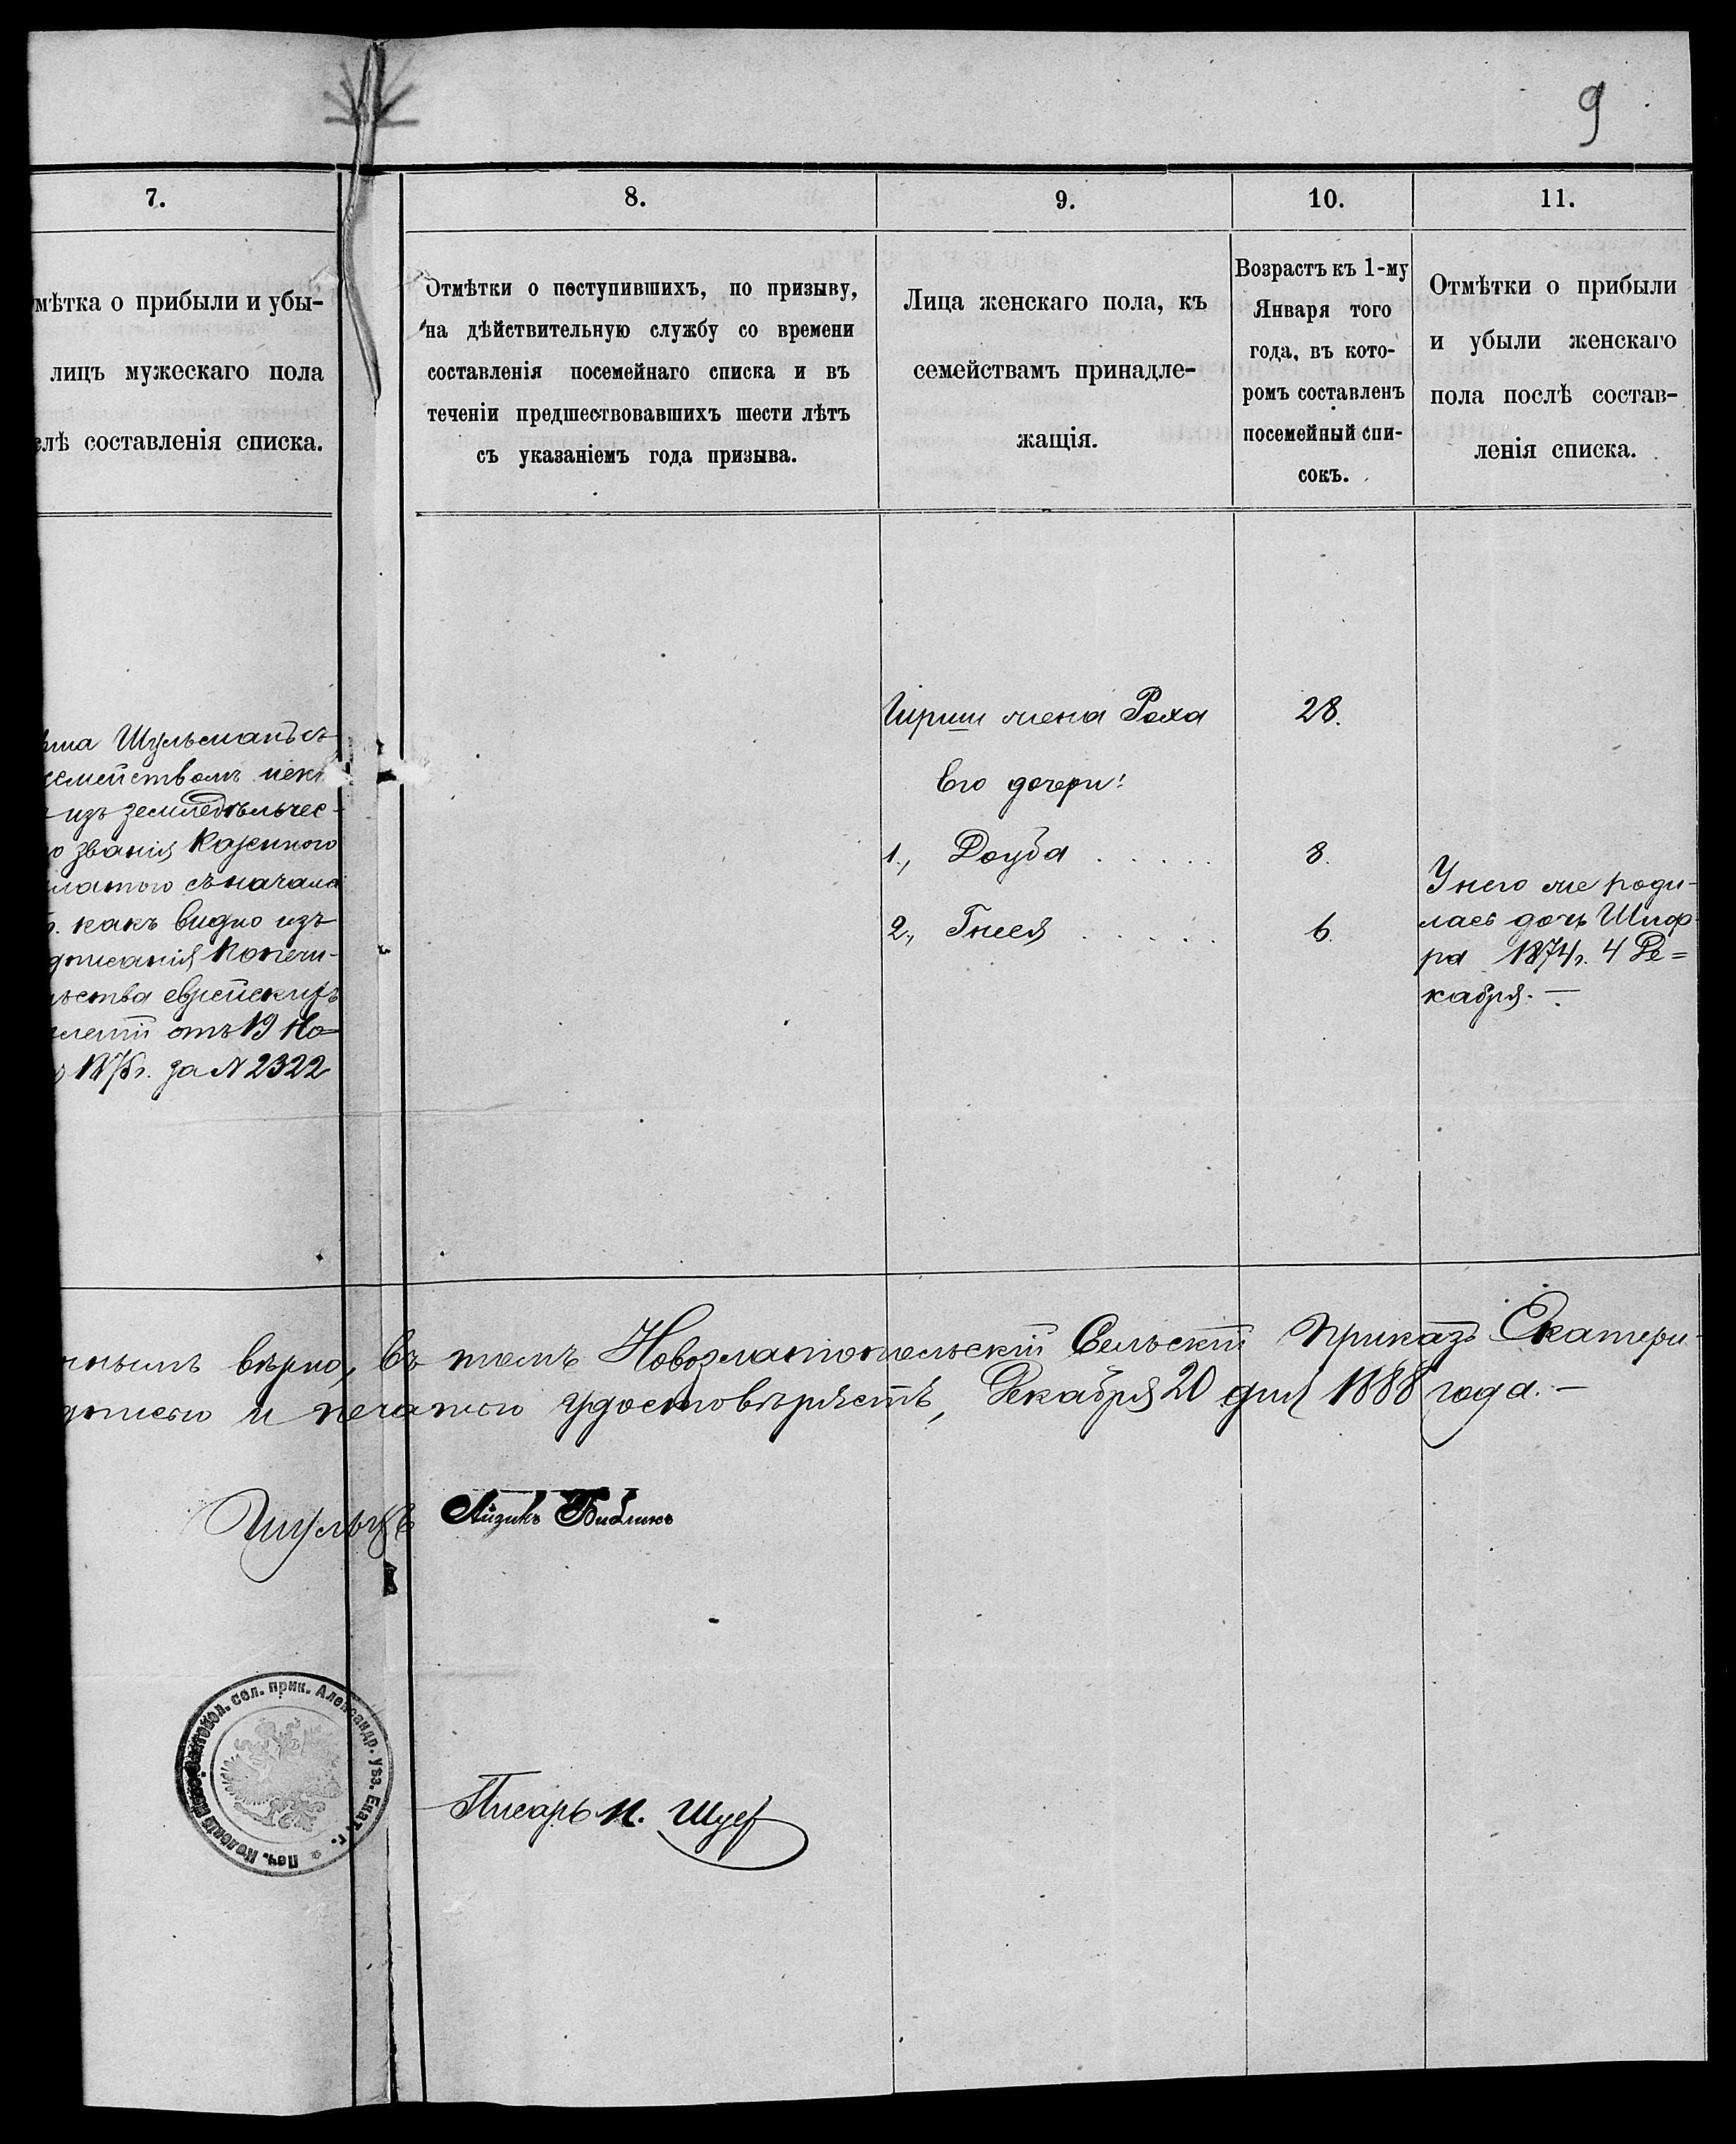 9
7.
8.
9.
10.
11.
мѣтка о прибыли и убы-
лицъ мужескаго пола
слѣ составленія списка.
Отмѣтки о поступившихъ, по призыву,
на дѣйствительную службу со времени
составленія посемейнаго списка и въ
теченіи предшествовавшихъ шести лѣтъ
съ указаніемъ года призыва.
Лица женскаго пола, къ
семействамъ принадле-
жащія.
Возрастъ къ 1-му
Января того
года, въ кото-
ромъ составленъ
посемейный спи-
сокъ.
Отмѣтки о прибыли
и убыли женскаго
пола послѣ состав-
ленія списка.
Шульманъ съ
семействомъ
изъ земледѣльчес-
званія Казенною
палатою съ начала
какъ видно изъ
Попечи-
льства еврейскихъ
отъ 19 Но-
187 г. за N 2322
Гирши жена Роха 28.
Его дочери:
1., Доуба 8.
2., Гнеся 6.
У него же роди-
лась дочь Шиф-
ра 1874 г. 4 Де=
кабря. —
вѣрно, въ томъ Новозлатопольскій Сельскій Приказъ Екатери-
и печатью удостовѣряетъ, Декабря 20 дня 1888 года. —
Шульцъ Айзикъ Библинъ
Печ. Колоніи Новозлатопол. сел. прик. Александр. уѣз. Екат. г.
Писарь И. Шуеф